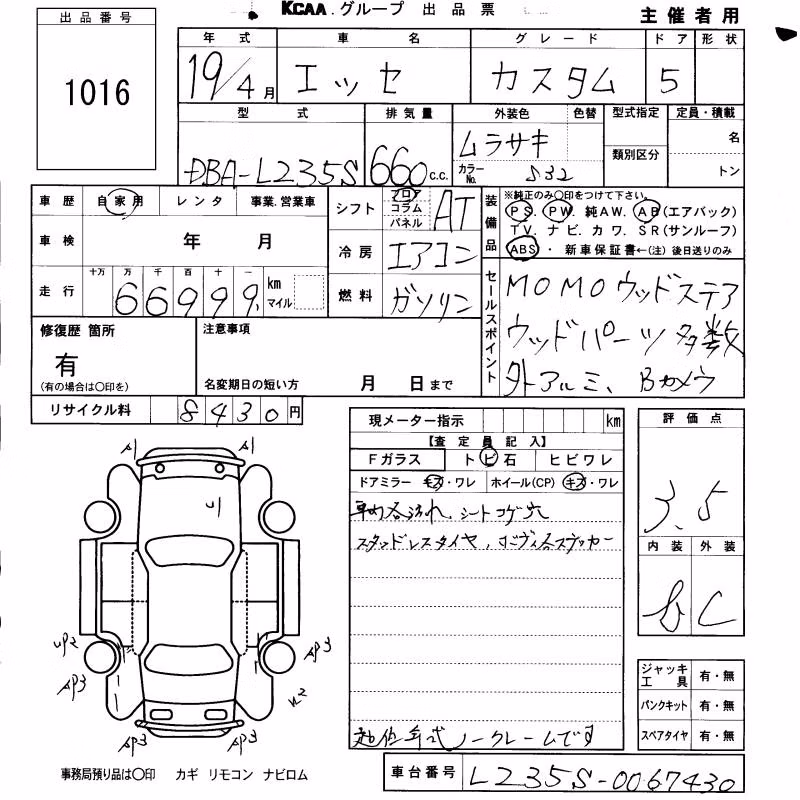 KCAA.グループ 出品票
主催者用
出品番号
1016
年式 車名 グレード ドア 形状
19/4月 エッセ カスタム 5
型式 排気量 外装色 色替 型式指定 定員・積載
DBA-L235S 660c.c. ムラサキ 類別区分 名
カラーNo. S32 トン
車歴 自家用 レンタ 事業.営業車
シフト フロア コラム パネル AT
装備品 ※純正のみ○印をつけて下さい。
PS. PW. 純AW. AB(エアバック)
TV. ナビ. カワ. SR(サンルーフ)
ABS ・ 新車保証書←(注)後日送りのみ
車検 年 月
冷房 エアコン
走行 十万 万 千 百 十 一 km マイル
66999
燃料 ガソリン
セールスポイント
MOMOウッドステア
ウッドパーツ多数
外アルミ、Bカメラ
修復歴 箇所
有
(有の場合は○印を)
注意事項
名変期日の短い方 月 日まで
リサイクル料 8430円
現メーター指示 km
【査定員記入】
Fガラス トビ石 ヒビワレ
ドアミラー キズ・ワレ ホイール(CP) キズ・ワレ
シートコゲ穴
スタッドレスタイヤ、
低年式ノークレームです
評価点
3.5
内装 外装
C
ジャッキ工具 有・無
パンクキット 有・無
スペアタイヤ 有・無
A1 A1
U1
UP2 AP3
AP3
AP3 AP3
事務局預り品は○印 カギ リモコン ナビロム
車台番号 L235S-0067430